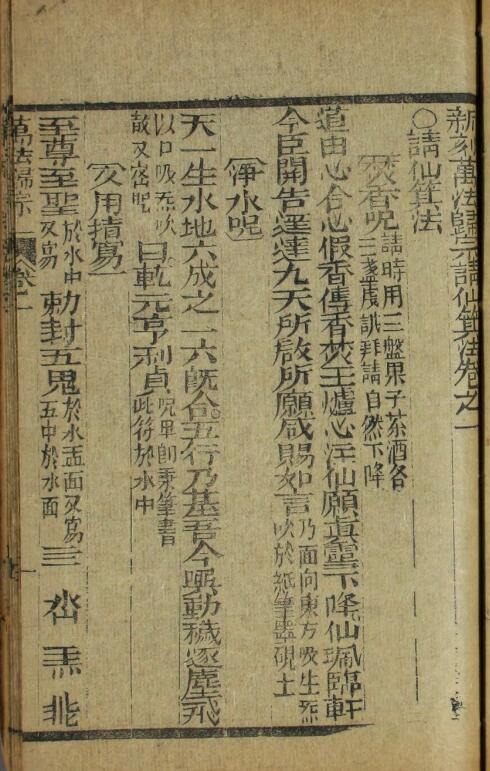 新刻萬法歸宗請仙箕法卷之一
○請仙箕法
焚香呪 請時用三盤果子茶酒各三盞虔誠拜請自然下降
道由心合心假香傳香焚玉爐心注仙願真靈下降仙珮臨軒
今臣關告逕達九天所啟所願咸賜如言 乃面向東方吸生炁吹於紙筆墨硯上
淨水呪
天一生水地六成之一六既合五行乃基吾今興動穢逐塵飛
以口吸炁吹散又密呪 曰乾元亨利貞 呪畢即秉筆書此符於水中
又用指寫
至尊至聖 於水中又寫 勅封五鬼 於水盂面又寫五中於水面
萬法歸宗 卷一
一